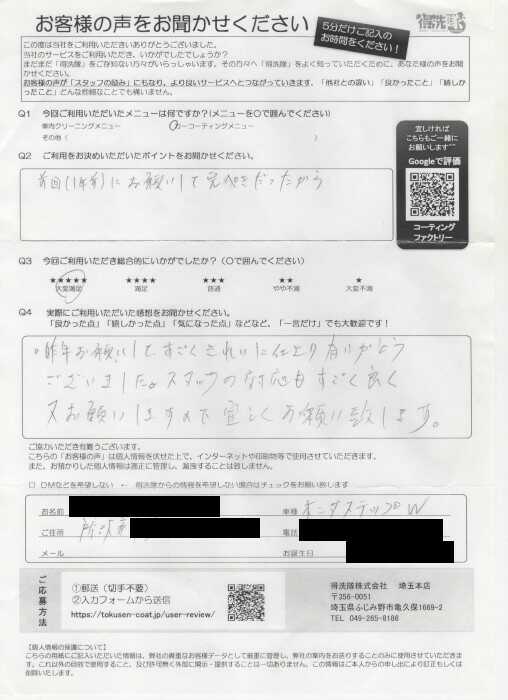 お客様の声をお聞かせください
5分だけご記入の
お時間をください!
得洗隊
この度は当社をご利用いただきありがとうございました。
当社のサービスをご利用いただき、いかがでしたでしょうか?
まだまだ「得洗隊」をご存知ない方々がいらっしゃいます。その方々へ「得洗隊」をよく知っていただくために、あなた様の声をお聞
かせください。
お客様の声が「スタッフの励み」にもなり、より良いサービスへとつながっていきます。「他社との違い」「良かったこと」「嬉しか
ったこと」どんな些細なことでも構いません。
Q1 今回ご利用いただいたメニューは何ですか?(メニューを〇で囲んでください)
車内クリーニングメニュー
カーコーティングメニュー
その他( )
Q2 ご利用をお決めいただいたポイントをお聞かせください。
前回(1年前)にお願いして完ぺきだったから
宜しければ
こちらもご一緒に
お願いします^^
Googleで評価
コーティング
ファクトリー
Q3 今回ご利用いただき総合的にいかがでしたか?(〇で囲んでください)
★★★★★ ★★★★ ★★★ ★★ ★
大変満足 満足 普通 やや不満 大変不満
Q4 実際にご利用いただいた感想をお聞かせください。
「良かった点」「嬉しかった点」「気になった点」などなど、「一言だけ」でも大歓迎です!
昨年お願いしてすごくきれいに仕上り有りがとう
ございました。スタッフの対応もすごく良く
又お願いしますので宜しくお願い致します。
ご協力いただき有難うございます。
こちらの「お客様の声」は個人情報を伏せた上で、インターネットや印刷物等で使用させていただきます。
また、お預かりした個人情報は適正に管理し、漏洩することは致しません。
□ DMなどを希望しない ← 得洗隊からの情報を希望しない場合はチェックをお願い致します
お名前
車種 ホンダステップW
ご住所 所沢市
電話
メール
お誕生日
ご応募方法
①郵送(切手不要)
②入力フォームから送信
https://tokusen-coat.jp/user-review/
得洗隊株式会社 埼玉本店
〒356-0051
埼玉県ふじみ野市亀久保1669-2
TEL 049-265-8188
【個人情報の保護について】
こちらの用紙にご記入いただいた情報は、弊社の貴重なお客様データとして厳重に管理し、弊社の案内をお送りすることのみに使用させていただきま
す。これ以外の目的で使用すること、及び許可無く外部に開示・提供することは一切ありません。この情報はご本人からの申し出により訂正もしくは
削除いたします。